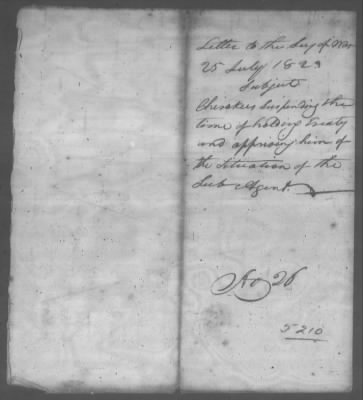 Letter to the Secy of War
25 July 1823
Subject
Cherokees suspending the
time of holding Treaty
and apprising him of
the Situation of the
Sub Agent.
No 26
5210